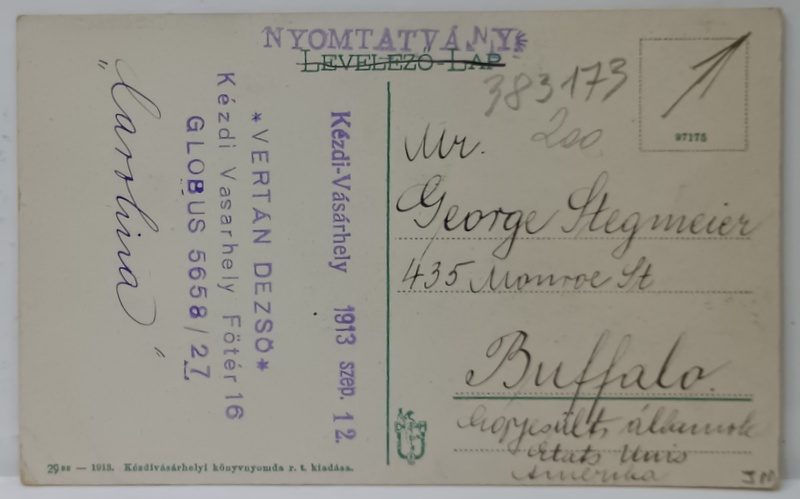 NYOMTATVÁNY
LEVELEZŐ-LAP
383173
200
97175
Mr.
George Stegmeier
435 Monroe St
Buffalo.
Egyesült államok
Etats Unis
Amerika
Kézdi-Vásárhely 1913 szep. 12.
*VERTÁN DEZSŐ*
Kézdi Vasarhely Főtér 16
GLOBUS 5658/27
„Carolina”
29 — 1913. Kézdivásárhelyi könyvnyomda r. t. kiadása.